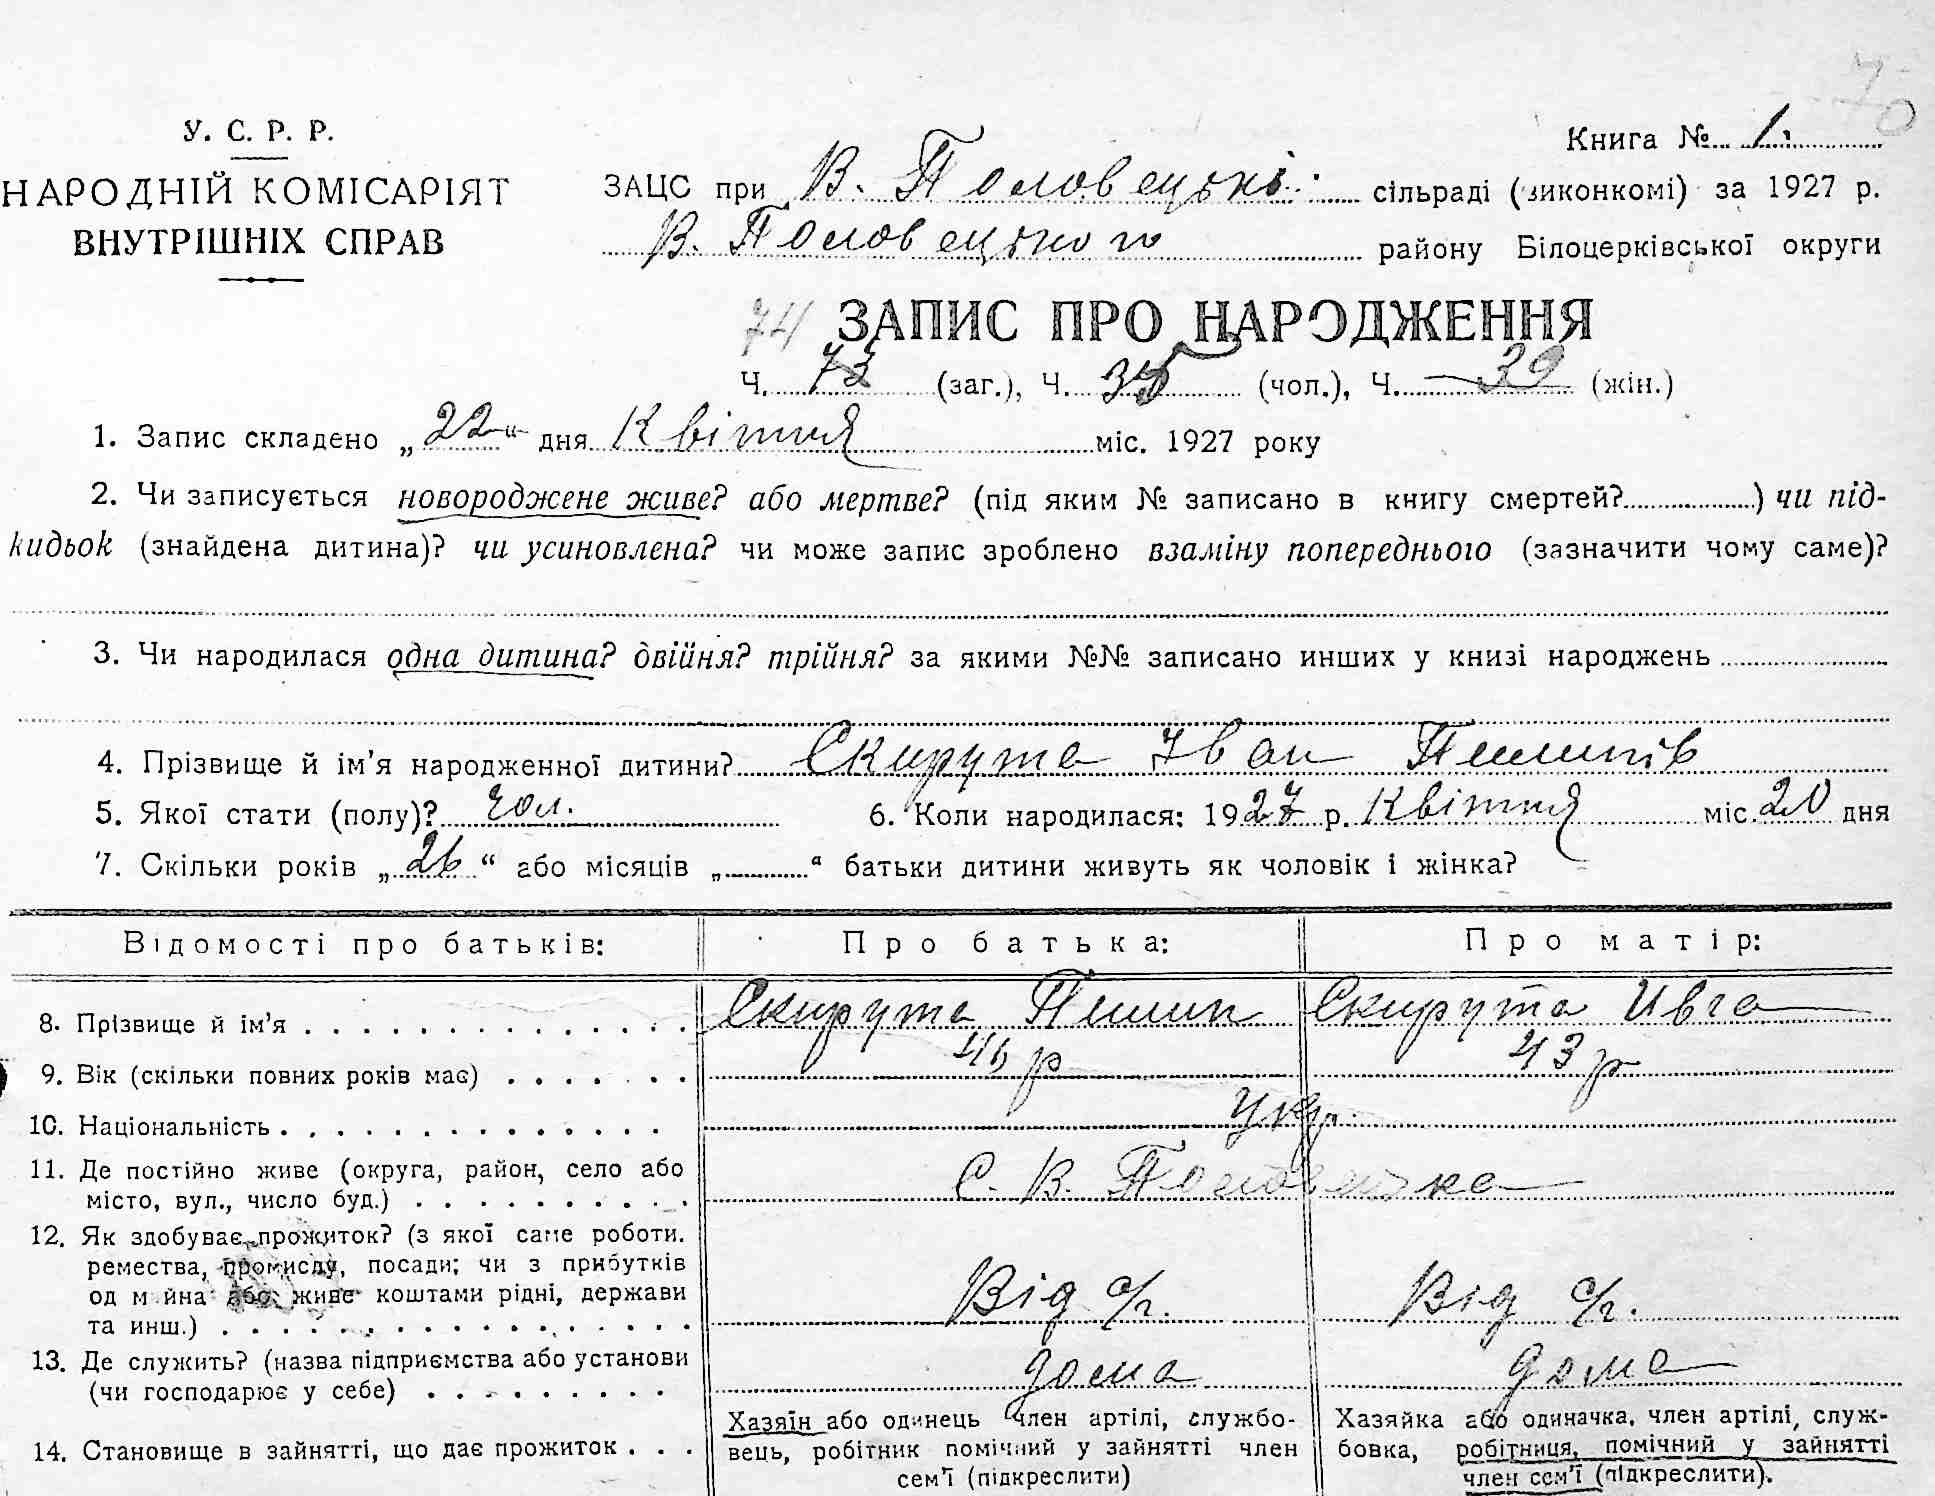 70
У. С. Р. Р.
НАРОДНІЙ КОМІСАРІЯТ
ВНУТРІШНІХ СПРАВ
Книга № 1.
ЗАЦС при В. Половецькі сільраді (виконкомі) за 1927 р.
В. Половецького району Білоцерківської округи
74 ЗАПИС ПРО НАРОДЖЕННЯ
Ч. 73 (заг.), Ч. 35 (чол.), Ч. 39 (жін.)
1. Запис складено „22“ дня Квітня міс. 1927 року
2. Чи записується новороджене живе? або мертве? (під яким № записано в книгу смертей?) чи під-
кидьок (знайдена дитина)? чи усиновлена? чи може запис зроблено взаміну попереднього (зазначити чому саме)?
3. Чи народилася одна дитина? двійня? трійня? за якими №№ записано инших у книзі народжень
4. Прізвище й ім'я народженної дитини? Скирута Іван Пилипів
5. Якої стати (полу)? чол. 6. Коли народилася: 1927 р. Квітня міс. 20 дня
7. Скільки років „26“ або місяців „“ батьки дитини живуть як чоловік і жінка?
Відомості про батьків: Про батька: Про матір:
8. Прізвище й ім'я Скирута Пилип Скирута Ивга
9. Вік (скільки повних років має) 46 р 43 р
10. Національність Укр.
11. Де постійно живе (округа, район, село або
місто, вул., число буд.) С. В. Половецька
12. Як здобуває прожиток? (з якої саме роботи.
ремества, промислу, посади; чи з прибутків
од м йна або живе коштами рідні, держави
та инш.) Від с/г. Від с/г.
13. Де служить? (назва підприємства або установи
(чи господарює у себе) дома дома
14. Становище в зайнятті, що дає прожиток
Хазяїн або одинець член артілі, службо-
вець, робітник помічний у зайнятті член
сем'ї (підкреслити)
Хазяйка або одиначка, член артілі, служ-
бовка, робітниця, помічний у зайнятті
член сем'ї (підкреслити).